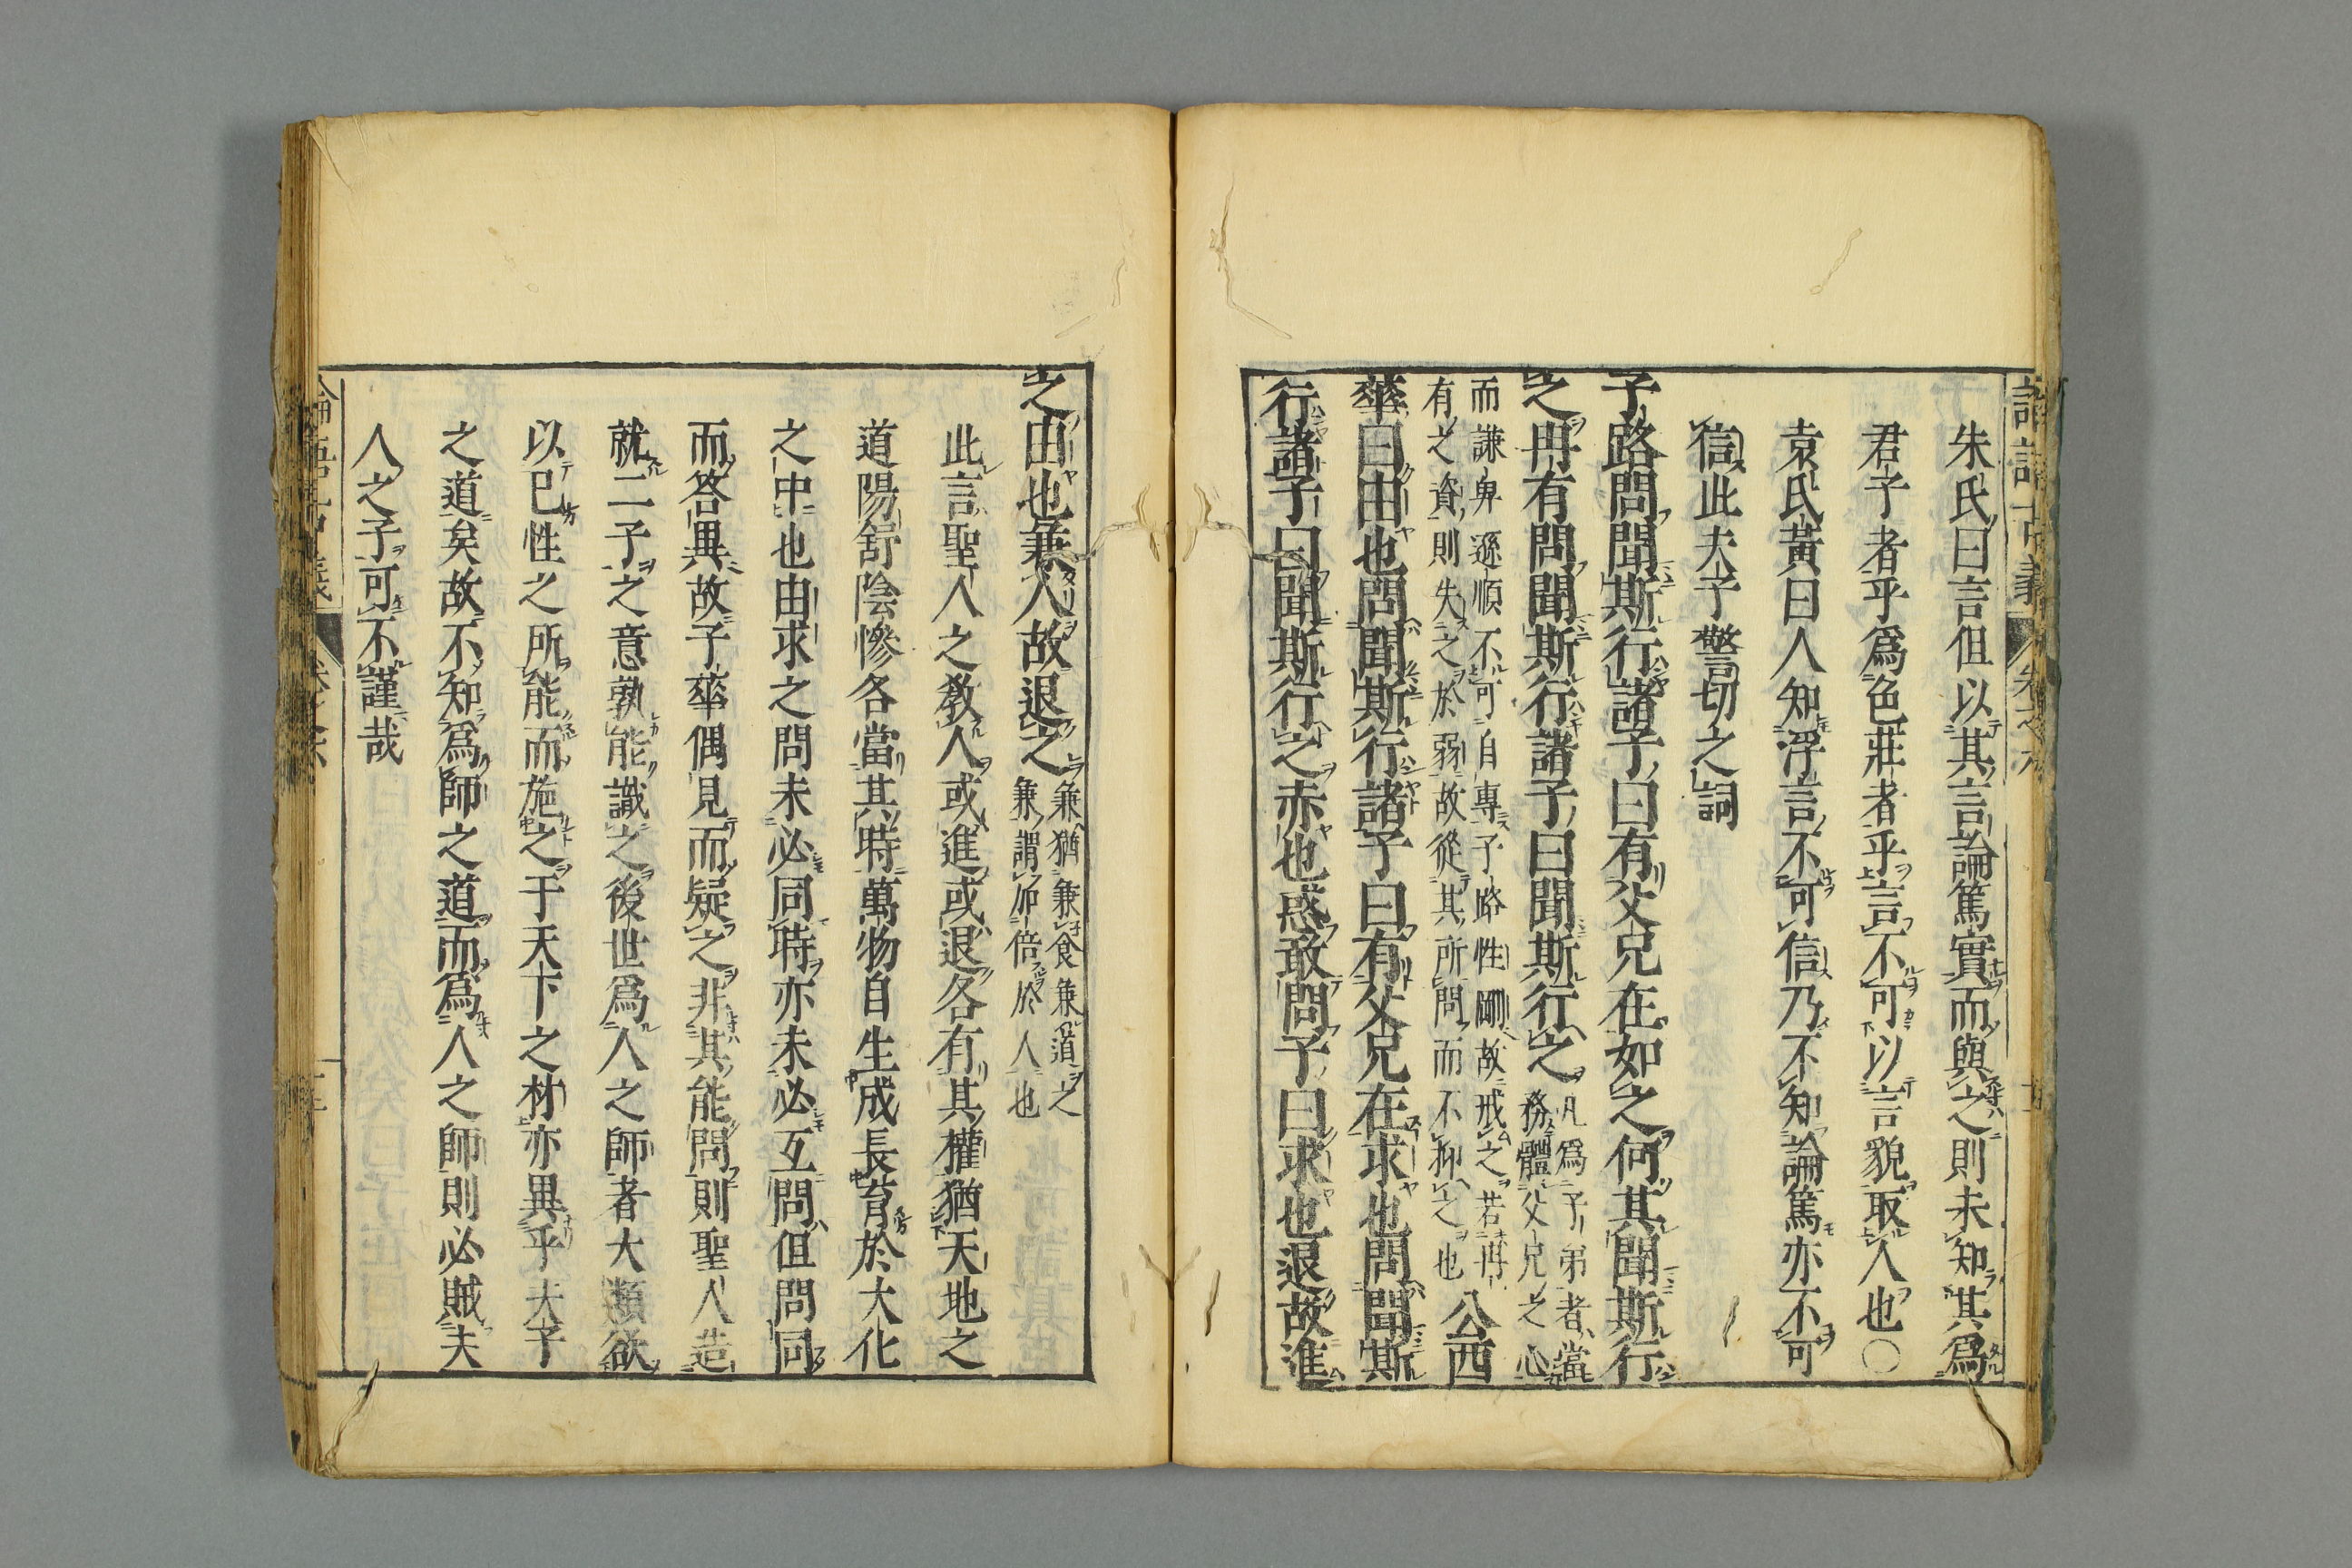 朱氏曰言但以其言論篤實而與之則未知其爲
君子者乎爲色莊者乎言不可以言貌取人也〇
袁氏黃曰人知浮言不可信乃不知論篤亦不可
信此夫子警切之詞
子路問聞斯行諸子曰有父兄在如之何其聞斯行
之冉有問聞斯行諸子曰聞斯行之
凡爲子弟者當
務體父兄之心
而謙卑遜順不可自專子路性剛故戒之若冉
有之資則失之於弱故從其所問而不抑之也
公西
華曰由也問聞斯行諸子曰有父兄在求也問聞斯
行諸子曰聞斯行之赤也惑敢問子曰求也退故進
之由也兼人故退之
兼猶兼食兼道之
兼謂加倍於人也
此言聖人之教人或進或退各有其權猶天地之
道陽舒陰慘各當其時萬物自生成長育於大化
之中也由求之問未必同時亦未必互問但問同
而答異故子華偶見而疑之非其能問則聖人造
就二子之意孰能識之後世爲人之師者大類欲
以己性之所能而施之于天下之材亦異乎夫子
之道矣故不知爲師之道而爲人之師則必賊夫
人之子可不謹哉
論語古義 卷之六